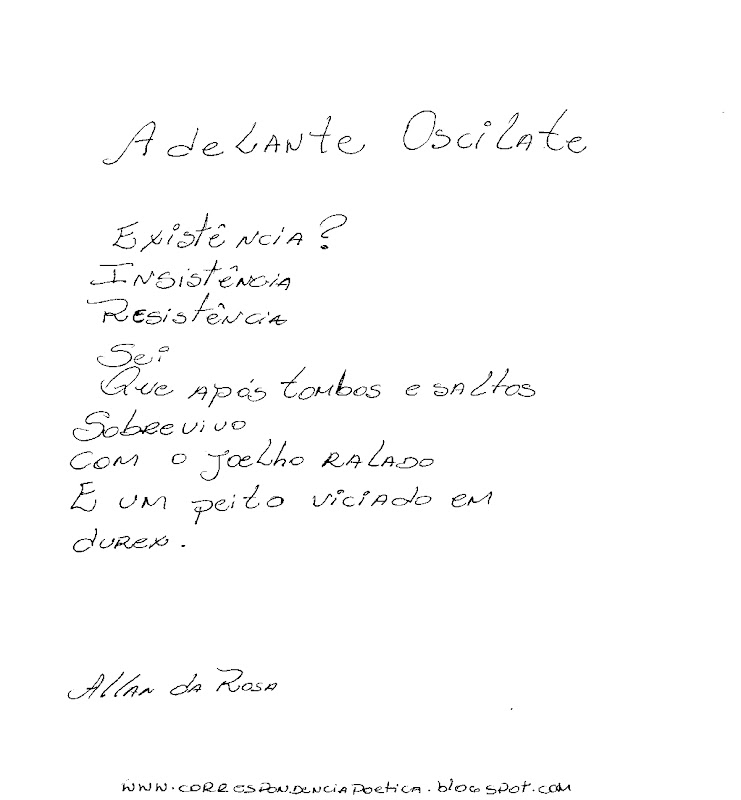 Adelante Oscilate
Existência?
Insistência
Resistência
Sei
Que após tombos e saltos
Sobrevivo
com o joelho ralado
E um peito viciado em
durex.
Allan da Rosa
www.correspondenciapoetica.blogspot.com